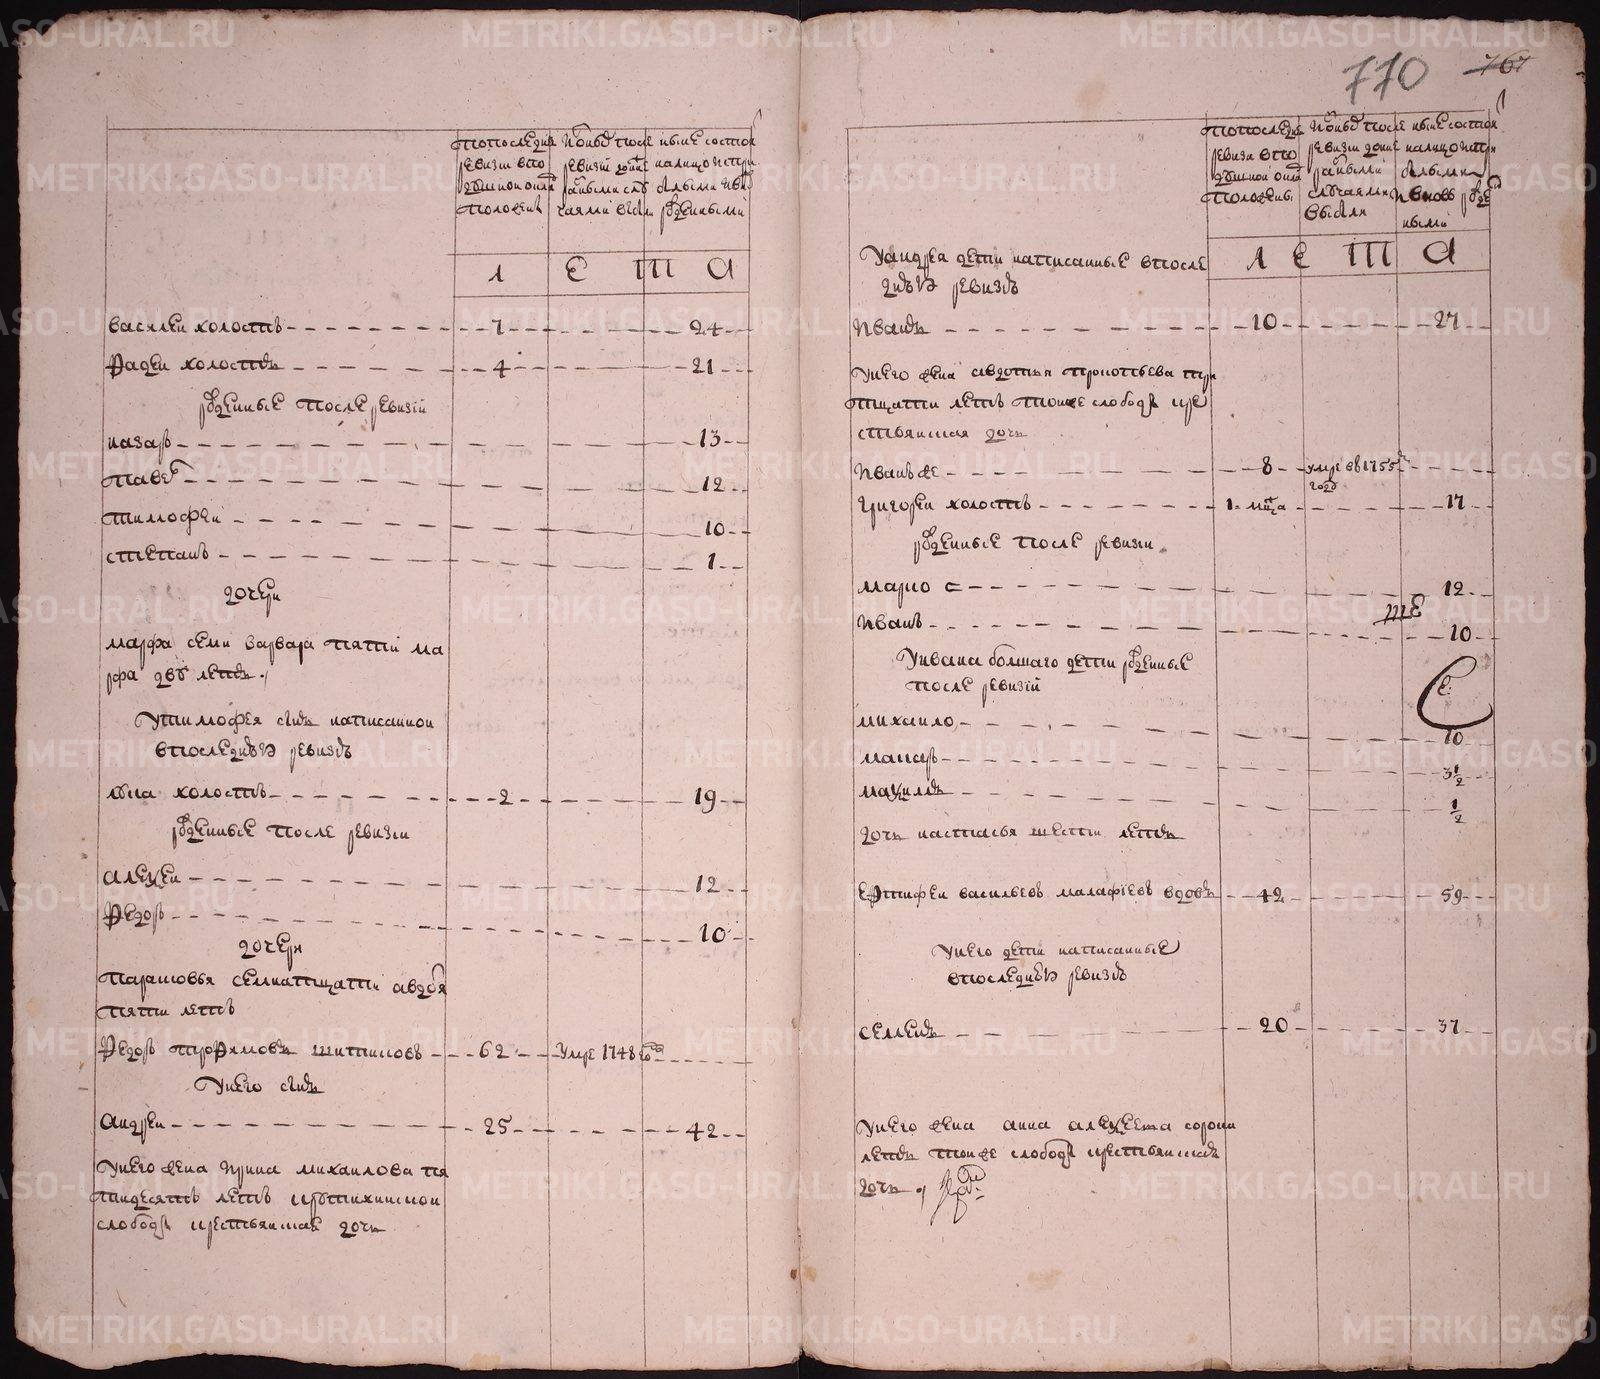 770 767
по последней ревизии в подушной оклад положены
и оныя после ревизии до ныне разными случаями выбыли
ныне состоят налицо с прибылыми и рожденными
л е т а
василеи холостъ 7 24
Фадеи холостъ 4 21
рожденные после ревизии
назаръ 13
павел 12
тимофеи 10
степанъ 1
дочери
марфа семи варвара пяти ма
рфа двѣ летъ
У тимофея сынъ написаннои
в последнѣй ревизѣ
лука холостъ 2 19
рожденные после ревизии
алеѯеи 12
Федоръ 10
дочери
парасковья семнатцати авдотя
пяти летъ
Федоръ трофимовъ шипицовъ 62 умре 1748 году
У него сынъ
андреи 25 42
У него жена ирина михаилова пя
тидесятъ летъ
слободы крестьянская дочь
по последней ревизии в подушной оклад положены
и оныя после ревизии до ныне разными случаями выбыли
ныне состоят налицо с прибылыми и вновь рожденными
У андрея дети написанные в после
днѣй ревизѣ
л е т а
Иванъ 10 27
У него жена авдотья прокопьева три
тцати летъ тоиже слободы кре
стьянская дочь
Иванъ же 8 умре в 1755 году
григореи холостъ 1 мца 17
рожденные после ревизии
марко 12
Иванъ 10
У ивана болшаго дети рожденные
после ревизии
михаило 10
макаръ 3 1/2
маѯимъ 1/2
дочь настасья шести летъ
васильевъ малафеевъ вдовъ 42 59
У него дети написанные
в последнѣй ревизѣ
семенъ 20 37
У него жена анна алеѯеева сорока
летъ тоиже слободы крестьянская
дочь